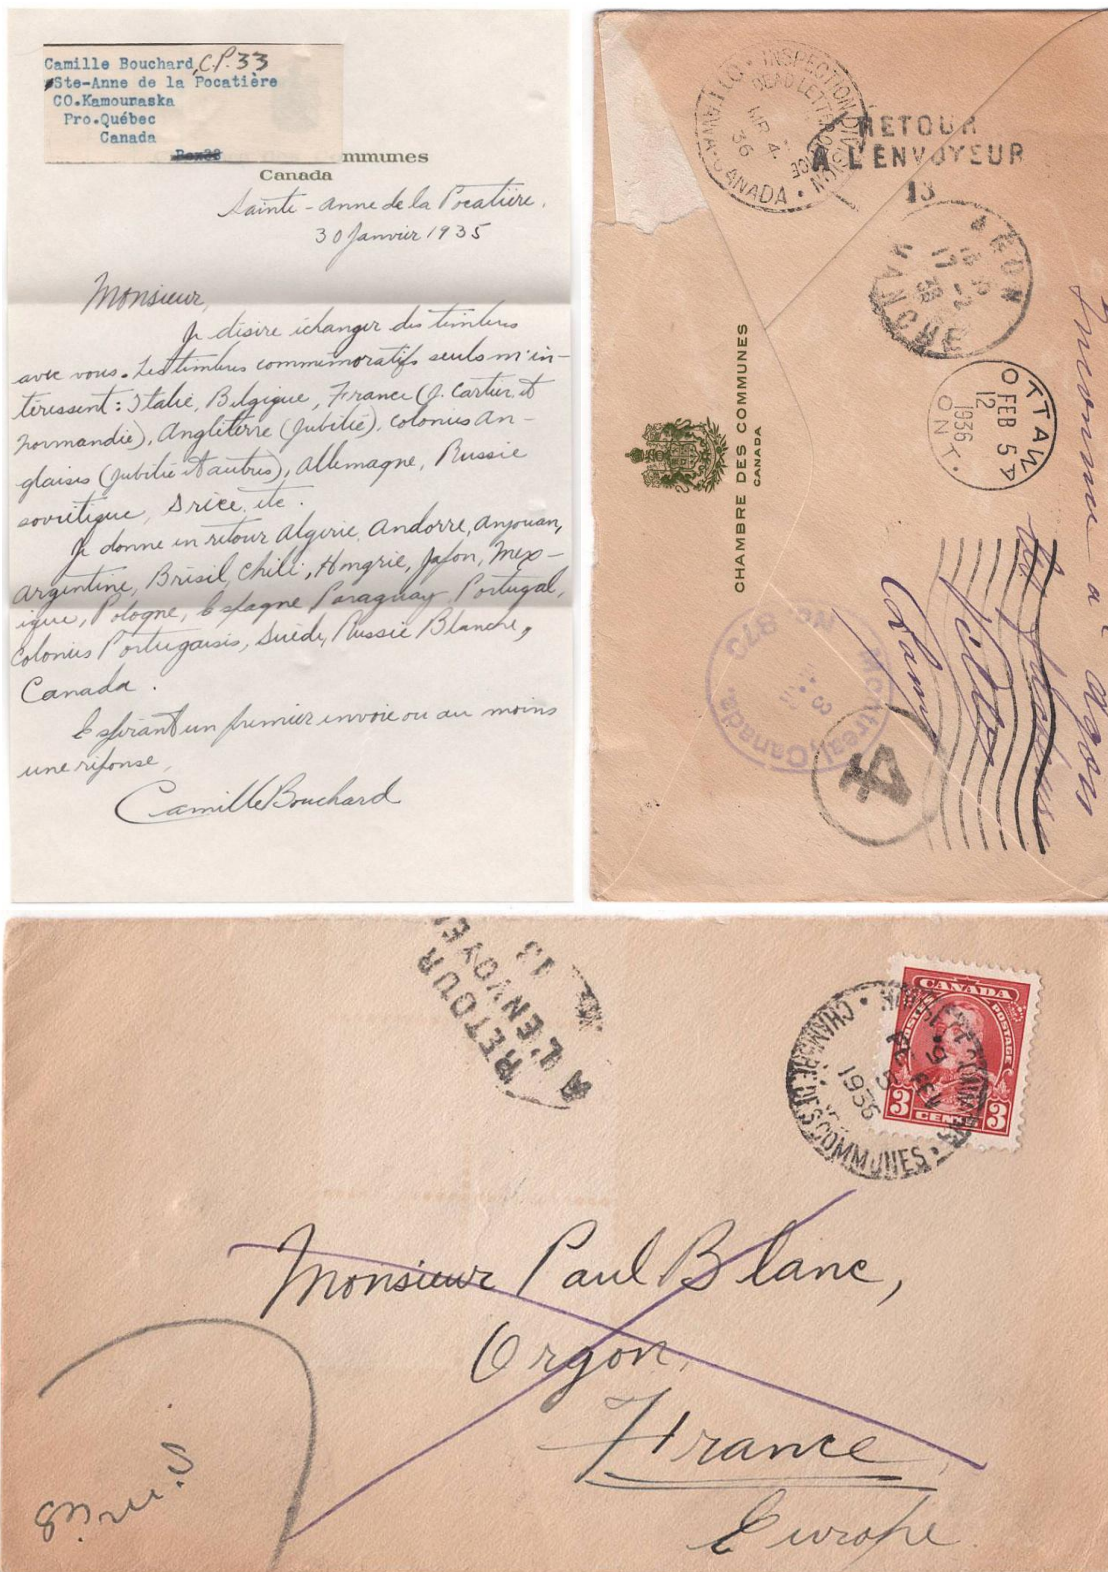 Camille Bouchard, C.P. 33
Ste-Anne de la Pocatière
CO.Kamouraska
Pro.Québec
Canada
Box38
mmunes
Canada
Sainte-Anne de la Pocatière,
30 Janvier 1935
Monsieur,
Je désire échanger des timbres
avec vous. Les timbres commémoratifs seuls m'in-
téressent: Italie, Belgique, France (J. Cartier et
Normandie), Angleterre (Jubilié), colonies An-
glaises (Jubilié et autres), Allemagne, Russie
soviétique, Grèce, etc.
Je donne en retour Algérie, Andorre, Anjouan,
Argentine, Brésil, Chili, Hongrie, Japon, Mex-
ique, Pologne, Espagne Paraguay, Portugal,
Colonies Portugaises, Suède, Russie Blanche,
Canada.
Espérant un premier envoie ou au moins
une réponse,
Camille Bouchard
INSPECTION DIVISION
DEAD LETTER OFFICE
MR 4
36
OTTAWA, CANADA
RETOUR
A L'ENVOYEUR
13
ORGON
17 -2
36
OTTAWA
FEB 5
12
1936
ONT.
CHAMBRE DES COMMUNES
CANADA
Inconnu à Orgon
Montreal, Canada.
No. 87C
4
RETOUR
A L'ENVOYEUR
13
CANADA
POSTAGE
3 3
CENTS
CHAMBRE DES COMMUNES
1936
Monsieur Paul Blanc,
Orgon,
France,
Europe.